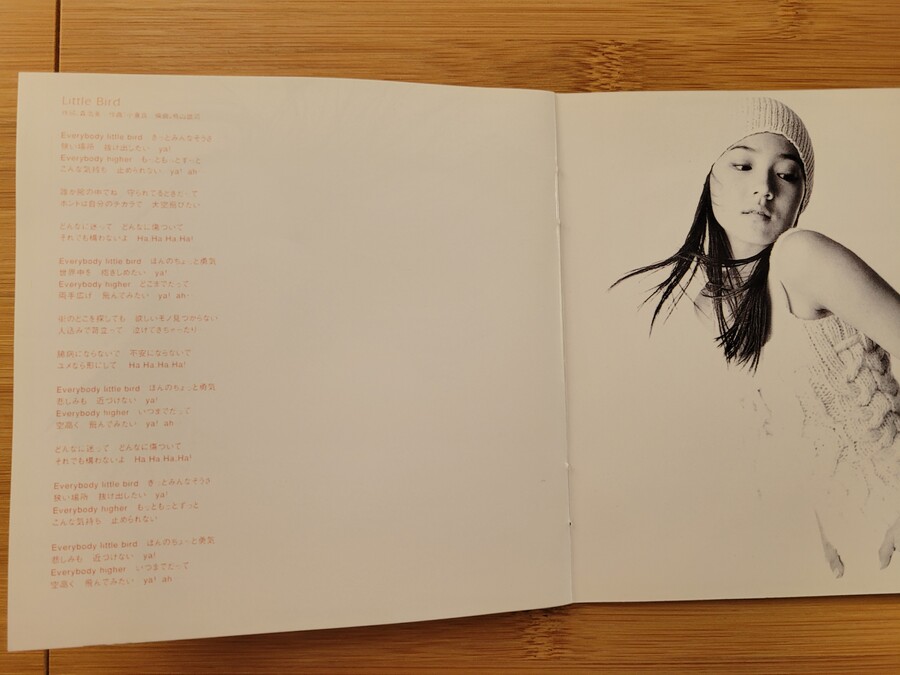 Little Bird
Everybody little bird きっとみんなそうさ
狭い場所 抜け出したい ya!
Everybody higher もっともっとずっと
こんな気持ち 止められない ya! ah
誰か腕の中でね 守られてるときだって
ホントは自分のチカラで 大空飛びたい
どんなに迷って どんなに傷ついて
それでも構わないよ Ha.Ha.Ha.Ha!
Everybody little bird ほんのちょっと勇気
世界中を 抱きしめたい ya!
Everybody higher どこまでだって
両手広げ 飛んでみたい ya! ah
街のどこを探しても 欲しいモノ見つからない
人込みで苛立って 泣けてきちゃったり
臆病にならないで 不安にならないで
ユメなら形にして Ha.Ha.Ha.Ha!
Everybody little bird ほんのちょっと勇気
悲しみも 近づけない ya!
Everybody higher いつまでだって
空高く 飛んでみたい ya! ah
どんなに迷って どんなに傷ついて
それでも構わないよ Ha.Ha.Ha.Ha!
Everybody little bird きっとみんなそうさ
狭い場所 抜け出したい ya!
Everybody higher もっともっとずっと
こんな気持ち 止められない
Everybody little bird ほんのちょっと勇気
悲しみも 近づけない ya!
Everybody higher いつまでだって
空高く 飛んでみたい ya! ah